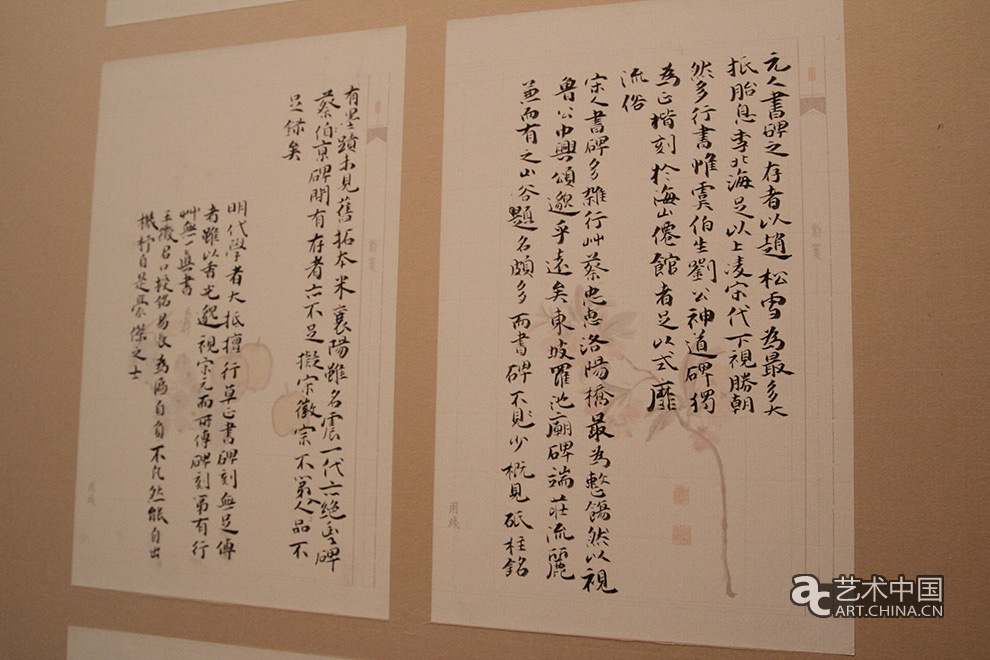 元人書碑之存者以趙松雪為最多大
抵胎息李北海足以上凌宋代下視勝朝
然多行書惟虞伯生劉公神道碑獨
為正楷刻於海山僊館者足以式靡
流俗
宋人書碑多雜行艸蔡忠惠洛陽橋最為整飭然以視
魯公中興頌邈乎遠矣東坡羅池廟碑端莊流麗
兼而有之山谷題名頗多而書碑不見少概見砥柱銘
有墨蹟未見舊拓本米襄陽雖名震一代亦絕少碑
蔡伯京碑間有存者亦不足擬宗徽宗不第人品不
足錄矣
明代學者大抵擅行草正書碑刻無足傳
者雖以香光邈視宋元而所傳碑刻第有行
艸無一真書
王徵君口授偈易取為為自負不凡然能自出
機杼自是豪傑之士
用箋
用箋
艺术中国
ART.CHINA.CN